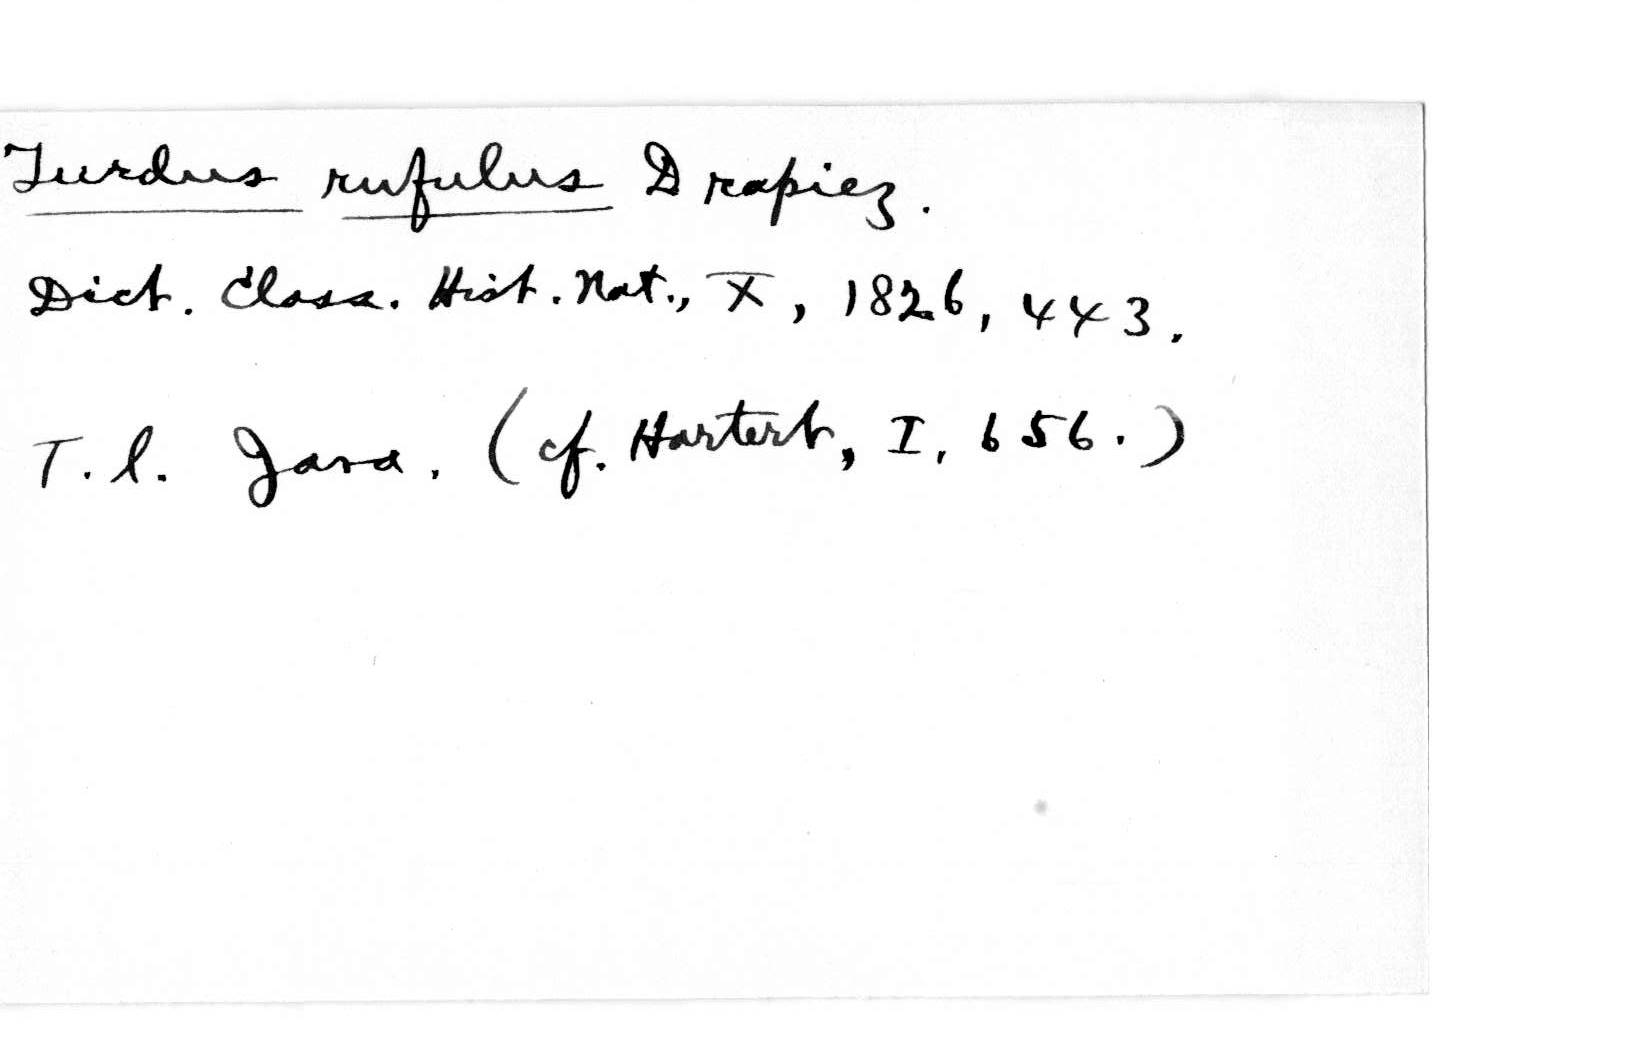 Turdus rufulus Drapiez.
Dict. Class. Hist. Nat., X, 1826, 443.
T. l. Java. (cf. Hartert, I, 656.)